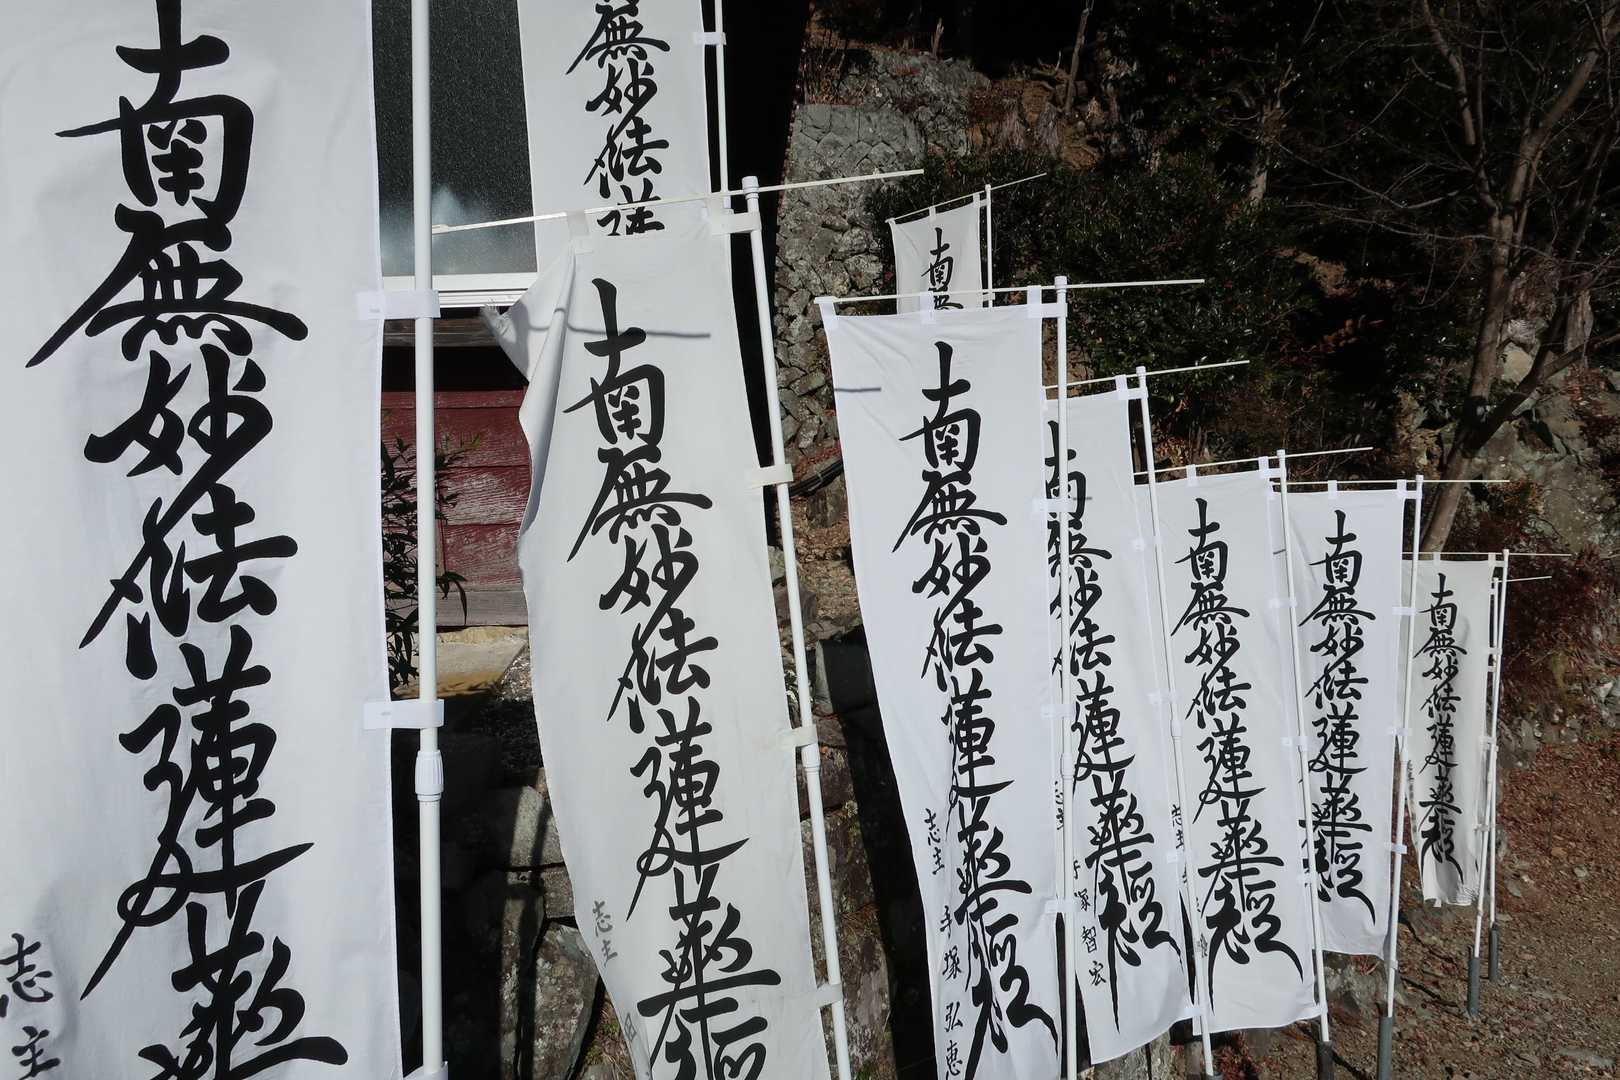 南無妙法蓮華
志主
無妙法蓮
南無妙法蓮華経
志主
南無
南無妙法蓮華経
志主 手塚弘恵
南無妙法蓮華経
志主 手塚智宏
南無妙法蓮華経
志主
南無妙法蓮華経
南無妙法蓮華経